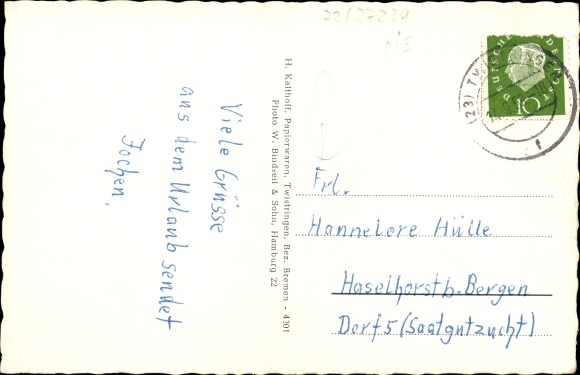 22/27239
Viele Grüsse
aus dem Urlaub sendet
Jochen.
H. Kalthoff, Papierwaren, Twistringen, Bez. Bremen - 4301
Photo W. Bindseil & Sohn, Hamburg 22
DEUTSCHE
10
(23)
Frl.
Hannelore Hülle
Haselhorst b. Bergen
Dorf 5 (Saatgutzucht)